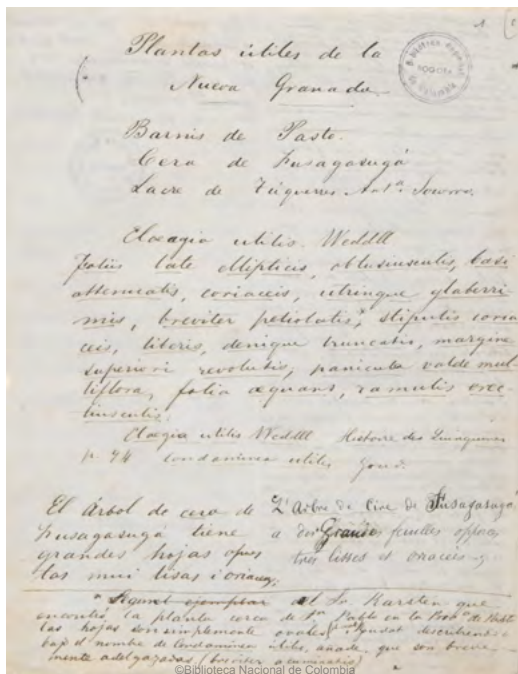 1
Plantas útiles de la
Nueva Granada
Biblioteca Nacional de Colombia
BOGOTA
Barnis de Pasto.
Cera de Fusagasugá
Lacre de Túquerres Antª.
Elaeagia utilis. Weddll
Foliis late ellipticis, obtusiusculis, basi
attenuatis, coriaceis, utrinque glaberri-
mis, breviter petiolatis, stipulis coria
ceis, liberis, denique truncatis, margine
superiori revolutis, panicula valde mul
tiflora, folia æquans, ramulis erec
tiusculis.
Elæagia utilis Weddll Histoire des Quinquinas
p. 94 Condaminea utilis Goud.
El árbol de cera de
Fusagasugá tiene
grandes hojas opues
tas mui lisas i
L'Arbre de Cire de Fusagasugá
a des Grande feuilles oppos,
tres lisses et
el Sr. Karsten que
encontró la planta cerca de Sn Pablo en la Prov.ª de
las hojas son simplemente ovales, describiendo
bajo el nombre de Condaminea utilis, añade, que son breve
mente adelgazadas (breviter acuminatis)
©Biblioteca Nacional de Colombia